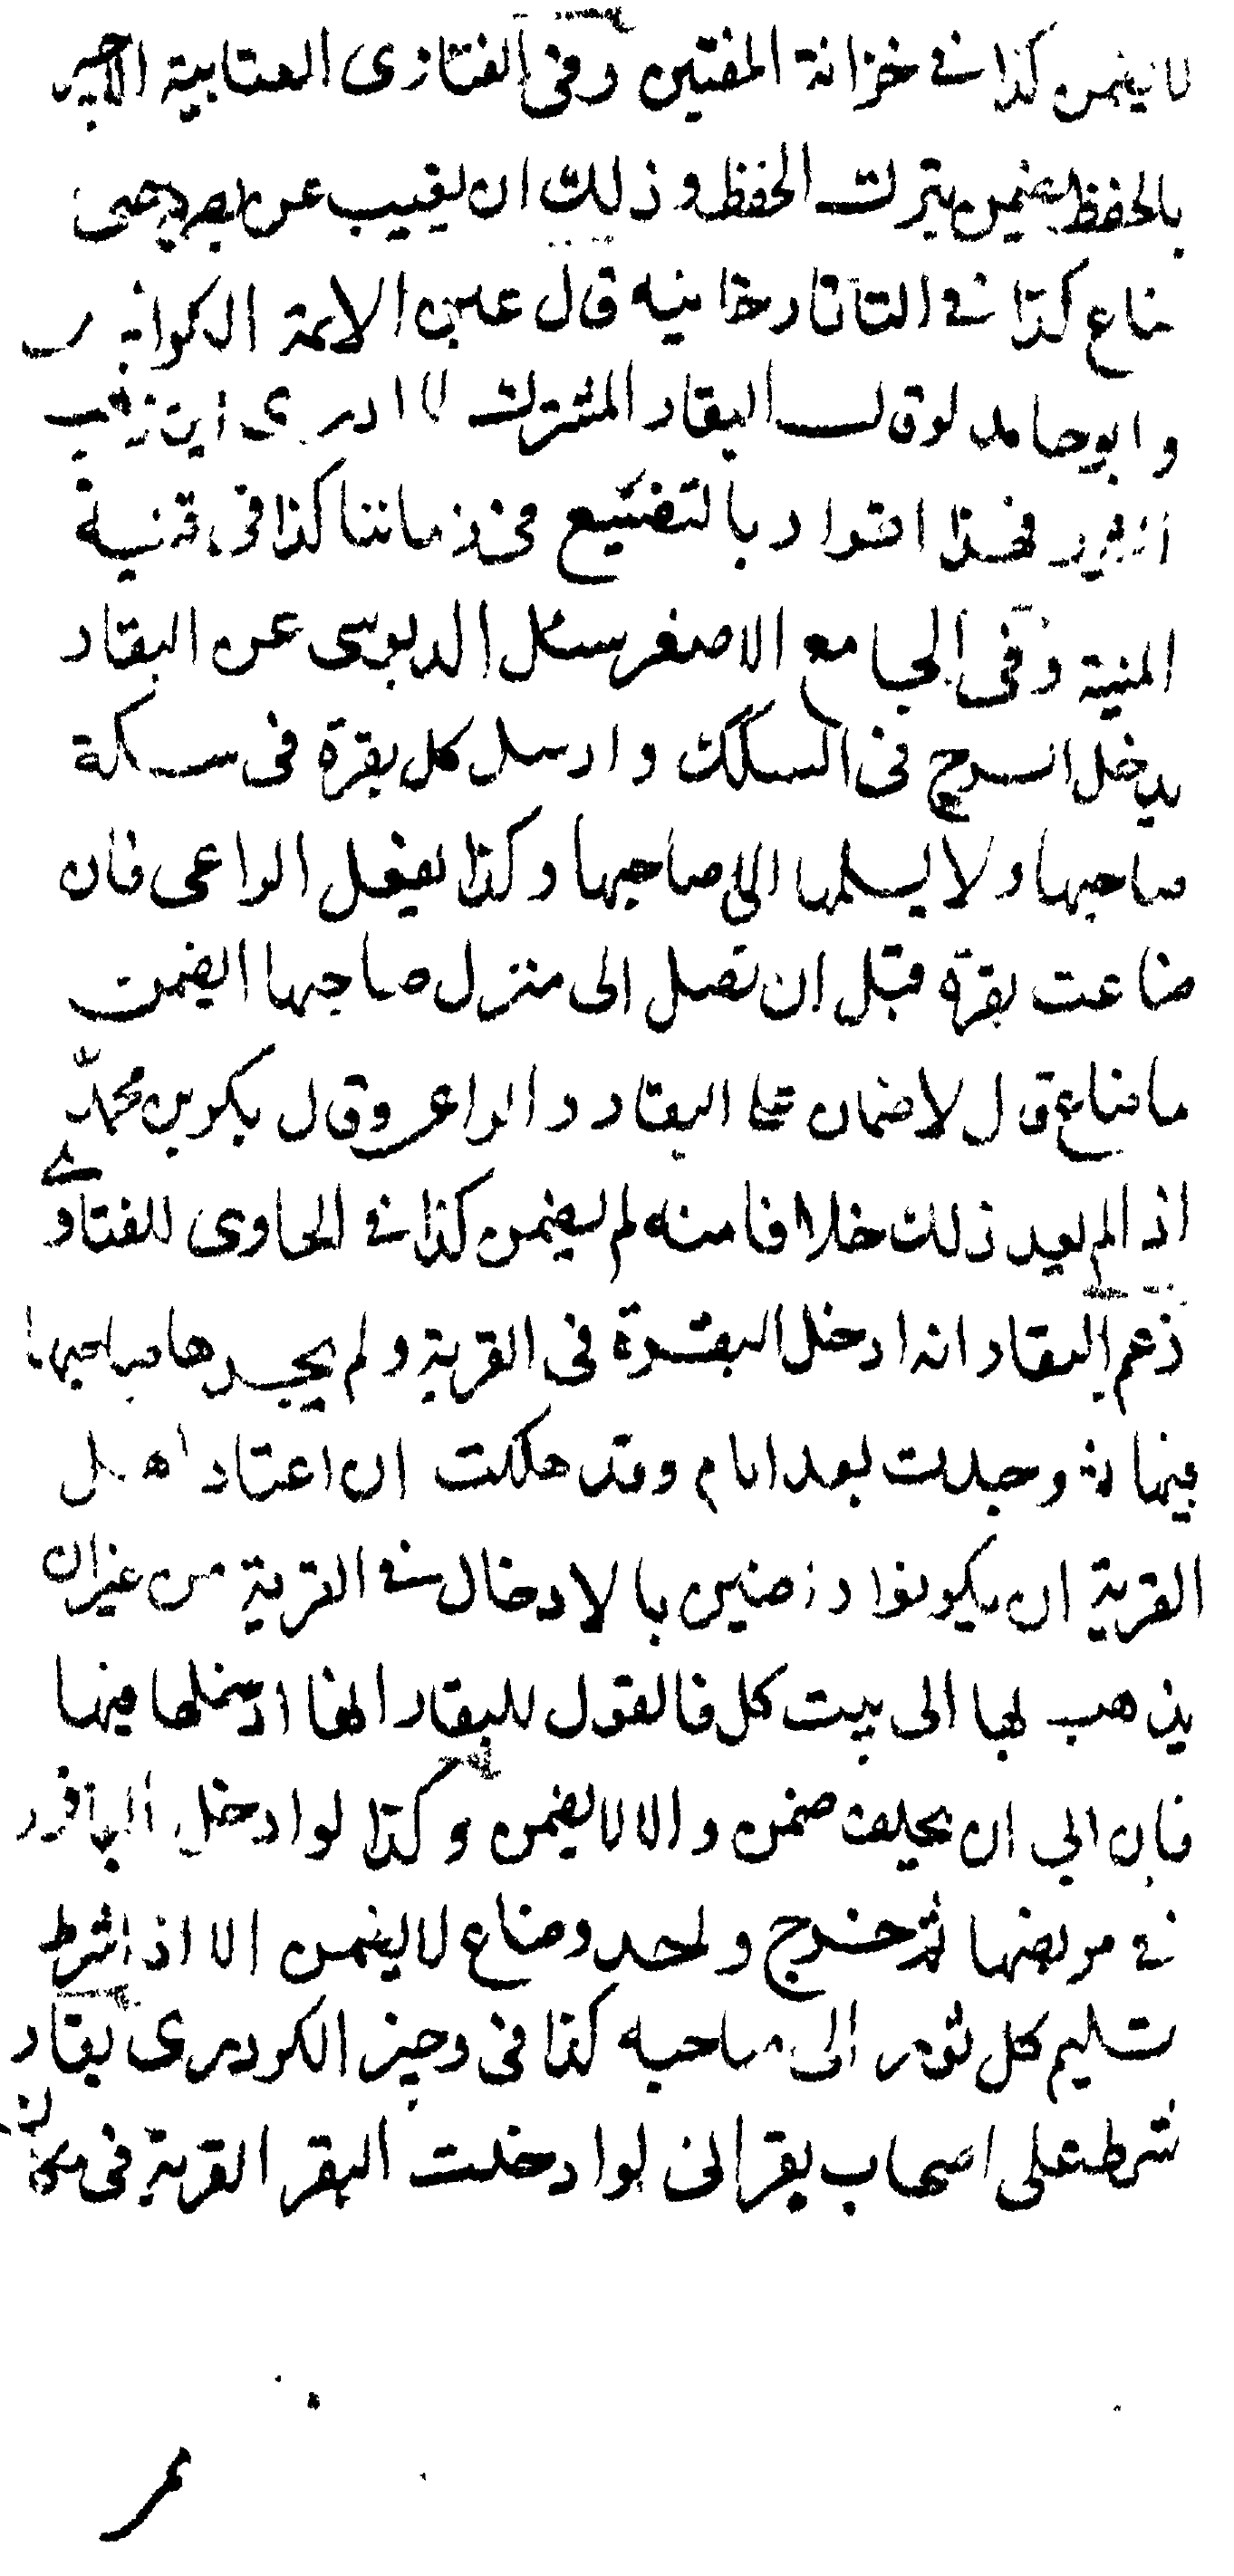 لا يضمن كذا في خزانة المفتين وفى الفتاوى العتابية الاجير
بالحفظ يضمن بترك الحفظ وذلك ان يغيب عن بصره حتى
ضاع كذا في التاتارخانيه قال عين الائمة الكرابيـ
وابو حامد لو قال البقار المشترك لا ادرى اين ذهب
الثور فهذا اقرار بالتضييع في زماننا كذا في قنية
المنية وفى الجامع الاصغر سئل الدبوسى عن البقار
يدخل السرح فى السكك وارسل كل بقرة فى سكة
صاحبها ولا يسلمها الى صاحبها وكذا يفعل الراعى فان
ضاعت بقرة قبل ان تصل الى منزل صاحبها ايضمن
ما ضاع قال لا ضمان على البقار والراعى وقال بكر بن محمد
اذا لم يعد ذلك خلافا منه لم يضمن كذا في الحاوى للفتاوى
زعم البقار انه ادخل البقرة فى القرية ولم يجدها صاحبها
فيها ثم وجدت بعد ايام وقد هلكت ان اعتاد اهل
القرية ان يكونوا راضين بالادخال في القرية من غير ان
يذهب بها الى بيت كل فالقول للبقار انها ادخلها فيها
فان ابى ان يحلف ضمن والا لا يضمن وكذا لو ادخل الباقور
في مربضها ثم خرج واحد وضاع لا يضمن الا اذا شرط
تسليم كل ثور الى صاحبه كذا فى وجيز الكردرى بقار
شرط على اصحاب بقر انى لو ادخلت البقر القرية فى مكان